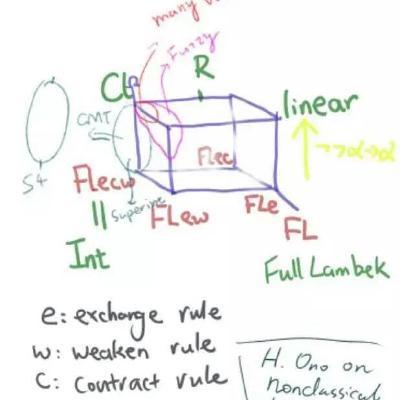 many
Fuzzy
R
CL
linear
GMT
¬¬α→α
S4
FLec
FLecw
Superint
FLew
FLe
||
FL
Int
Full Lambek
e: exchange rule
w: weaken rule
C: contract rule
H. Ono on
nonclassical